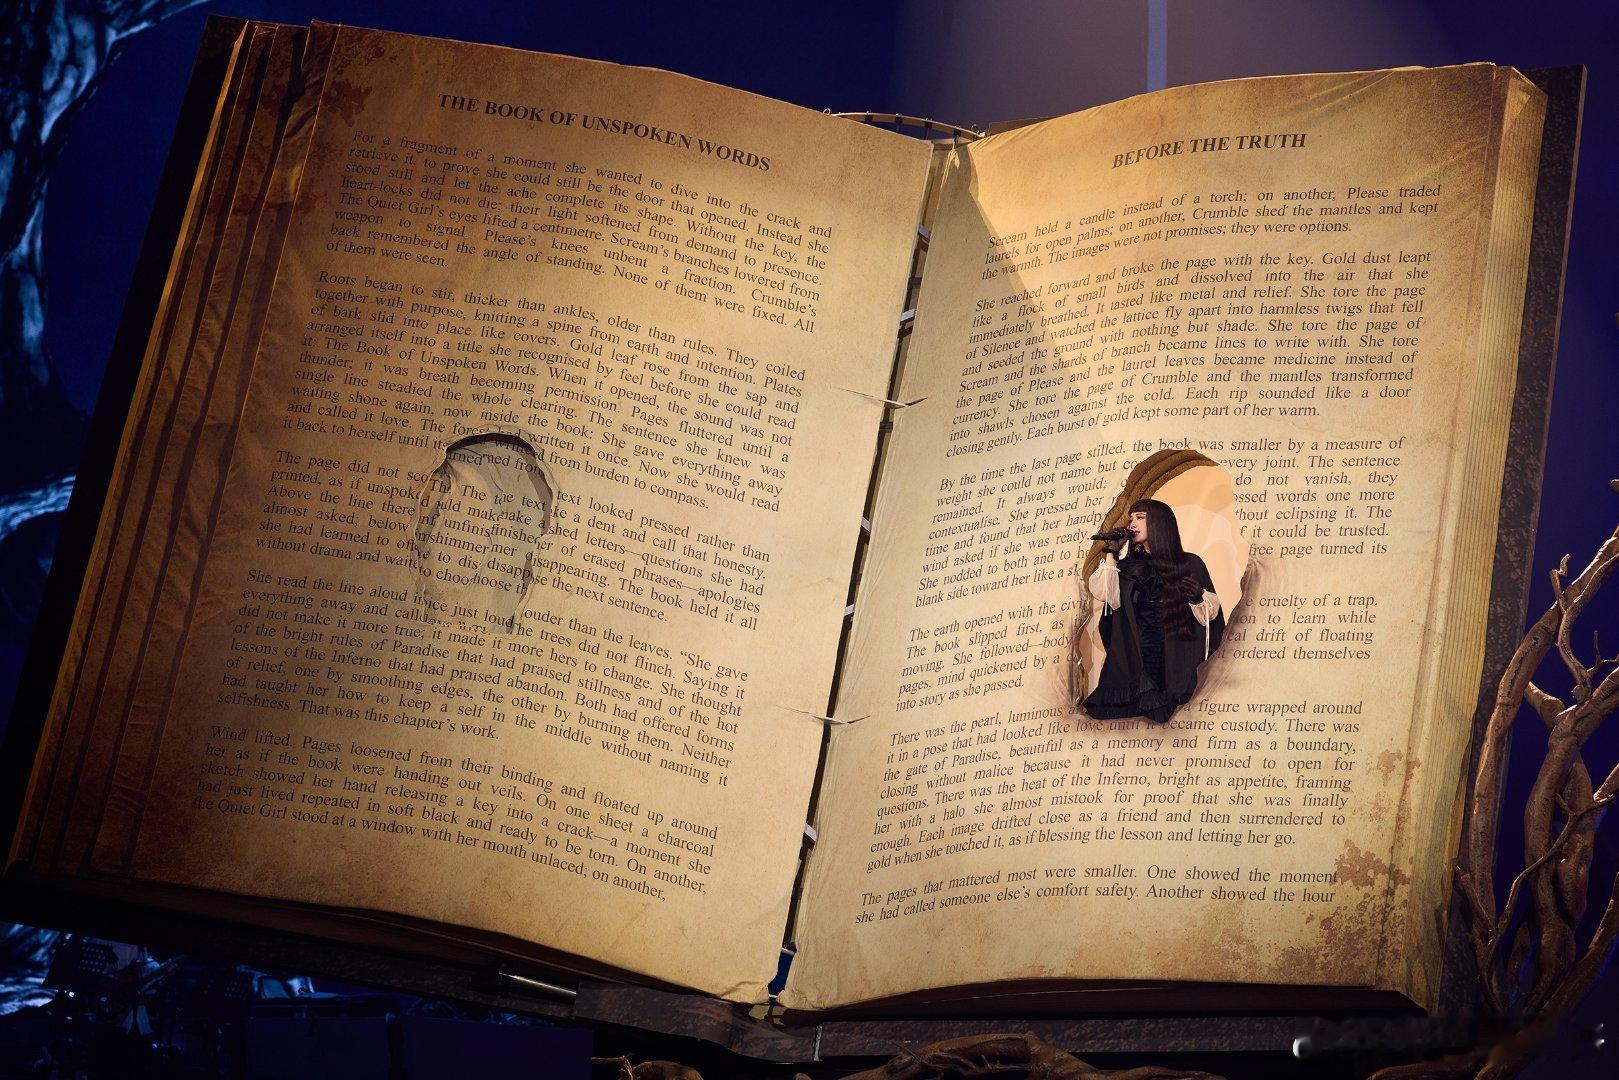 THE BOOK OF UNSPOKEN WORDS
For a fragment of a moment she wanted to dive into the crack and
retrieve it, to prove she could still be the door that opened. Instead she
stood still and let the ache complete its shape. Without the key, the
heart-locks did not die; their light softened from demand to presence.
The Quiet Girl's eyes lifted a centimetre. Scream's branches lowered from
weapon to signal. Please's knees unbent a fraction. Crumble's
back remembered the angle of standing. None of them were fixed. All
of them were seen.
Roots began to stir, thicker than ankles, older than rules. They coiled
together with purpose, knitting a spine from earth and intention. Plates
of bark slid into place like covers. Gold leaf rose from the sap and
arranged itself into a title she recognised by feel before she could read
it: The Book of Unspoken Words. When it opened, the sound was not
thunder; it was breath becoming permission. Pages fluttered until a
single line steadied the whole clearing. The sentence she knew was
waiting shone again, now inside the book: She gave everything away
and called it love. The forest had written it once. Now she would read
it back to herself until its from burden to compass.
The page did not text looked pressed rather than
printed, as if a dent and call that honesty.
Above the line there unfinished letters—questions she had
almost asked; below of erased phrases—apologies
she had learned to disappearing. The book held it all
without drama and the next sentence.
She read the line aloud just louder than the leaves. "She gave
everything away and the trees did not flinch. Saying it
did not make it more true; it made it more hers to change. She thought
of the bright rules of Paradise that had praised stillness and of the hot
lessons of the Inferno that had praised abandon. Both had offered forms
of relief, one by smoothing edges, the other by burning them. Neither
had taught her how to keep a self in the middle without naming it
selfishness. That was this chapter's work.
Wind lifted. Pages loosened from their binding and floated up around
her as if the book were handing out veils. On one sheet a charcoal
sketch showed her hand releasing a key into a crack—a moment she
had just lived repeated in soft black and ready to be torn. On another,
the Quiet Girl stood at a window with her mouth unlaced; on another,
BEFORE THE TRUTH
Scream held a candle instead of a torch; on another, Please traded
laurels for open palms; on another, Crumble shed the mantles and kept
the warmth. The images were not promises; they were options.
She reached forward and broke the page with the key. Gold dust leapt
like a flock of small birds and dissolved into the air that she
immediately breathed. It tasted like metal and relief. She tore the page
of Silence and watched the lattice fly apart into harmless twigs that fell
and seeded the ground with nothing but shade. She tore the page of
Scream and the shards of branch became lines to write with. She tore
the page of Please and the laurel leaves became medicine instead of
currency. She tore the page of Crumble and the mantles transformed
into shawls chosen against the cold. Each rip sounded like a door
closing gently. Each burst of gold kept some part of her warm.
By the time the last page stilled, the book was smaller by a measure of
weight she could not name but every joint. The sentence
remained. It always would; do not vanish, they
contextualise. She pressed her words one more
time and found that her without eclipsing it. The
wind asked if she was ready. it could be trusted.
She nodded to both and to page turned its
blank side toward her like a
The earth opened with the cruelty of a trap.
The book slipped first, as to learn while
moving. She followed—body drift of floating
pages, mind quickened by a ordered themselves
into story as she passed.
There was the pearl, luminous a figure wrapped around
it in a pose that had looked like love until it became custody. There was
the gate of Paradise, beautiful as a memory and firm as a boundary,
closing without malice because it had never promised to open for
questions. There was the heat of the Inferno, bright as appetite, framing
her with a halo she almost mistook for proof that she was finally
enough. Each image drifted close as a friend and then surrendered to
gold when she touched it, as if blessing the lesson and letting her go.
The pages that mattered most were smaller. One showed the moment
she had called someone else's comfort safety. Another showed the hour